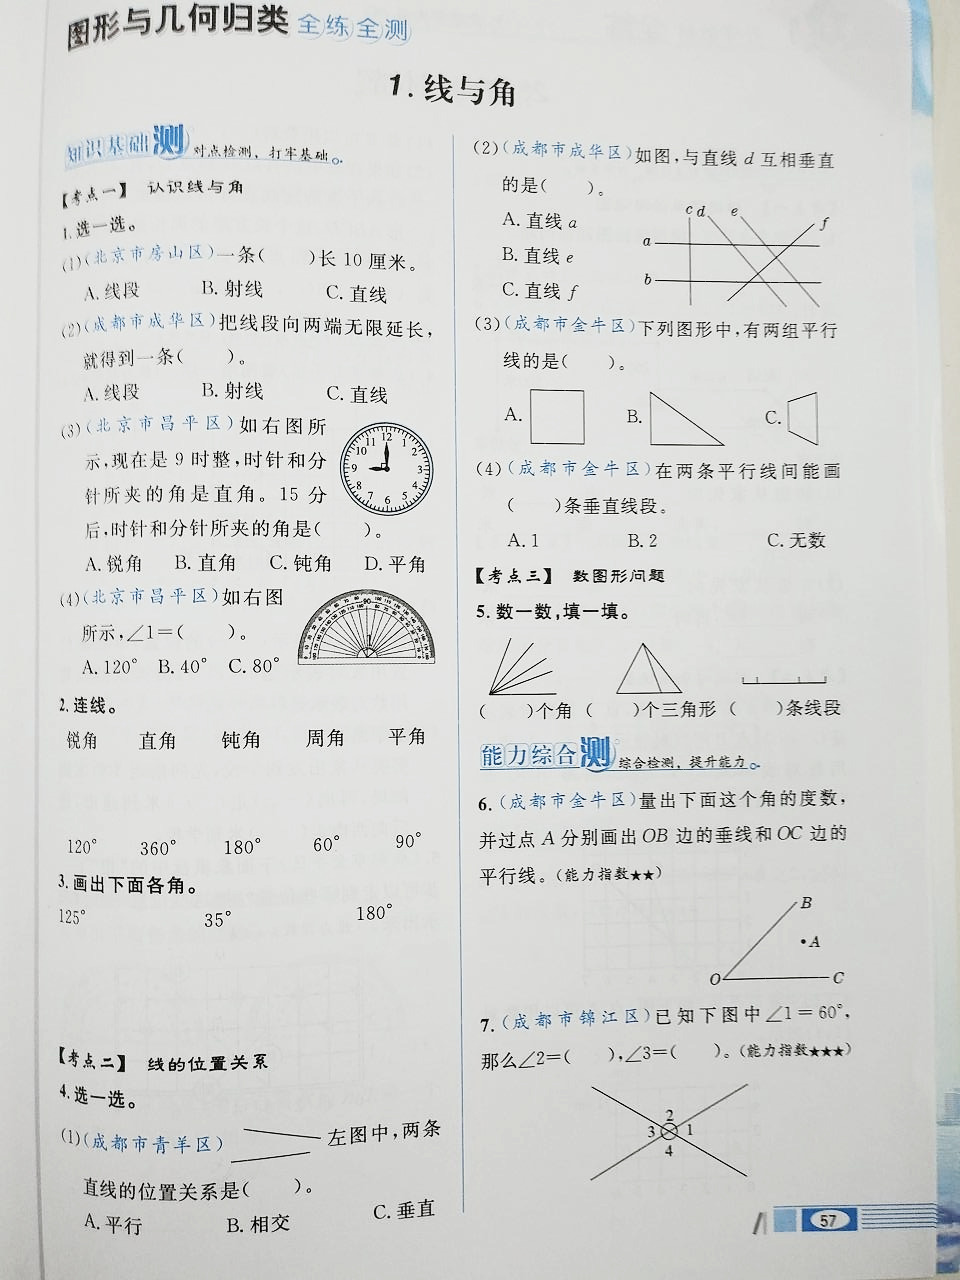 图形与几何归类 全练全测
1.线与角
知识基础测 对点检测，打牢基础。
【考点一】 认识线与角
1.选一选。
(1)(北京市房山区)一条(  )长10厘米。
A.线段 B.射线 C.直线
(2)(成都市成华区)把线段向两端无限延长,
就得到一条(  )。
A.线段 B.射线 C.直线
(3)(北京市昌平区)如右图所
示,现在是9时整,时针和分
针所夹的角是直角。15分
后,时针和分针所夹的角是(  )。
A.锐角 B.直角 C.钝角 D.平角
12 1 2 3 4 5 6 7 8 9 10 11
(4)(北京市昌平区)如右图
所示,∠1=(  )。
A.120° B.40° C.80°
1
2.连线。
锐角 直角 钝角 周角 平角
120° 360° 180° 60° 90°
3.画出下面各角。
125° 35° 180°
【考点二】 线的位置关系
4.选一选。
(1)(成都市青羊区) 左图中,两条
直线的位置关系是(  )。
A.平行 B.相交 C.垂直
(2)(成都市成华区)如图,与直线d互相垂直
的是(  )。
A.直线a
B.直线e
C.直线f
c d e f
a
b
(3)(成都市金牛区)下列图形中,有两组平行
线的是(  )。
A. B. C.
(4)(成都市金牛区)在两条平行线间能画
(  )条垂直线段。
A.1 B.2 C.无数
【考点三】 数图形问题
5.数一数,填一填。
(  )个角 (  )个三角形 (  )条线段
能力综合测 综合检测，提升能力。
6.(成都市金牛区)量出下面这个角的度数,
并过点A分别画出OB边的垂线和OC边的
平行线。(能力指数★★)
B
A
O C
7.(成都市锦江区)已知下图中∠1=60°,
那么∠2=(  ),∠3=(  )。(能力指数★★★)
2
3 1
4
57